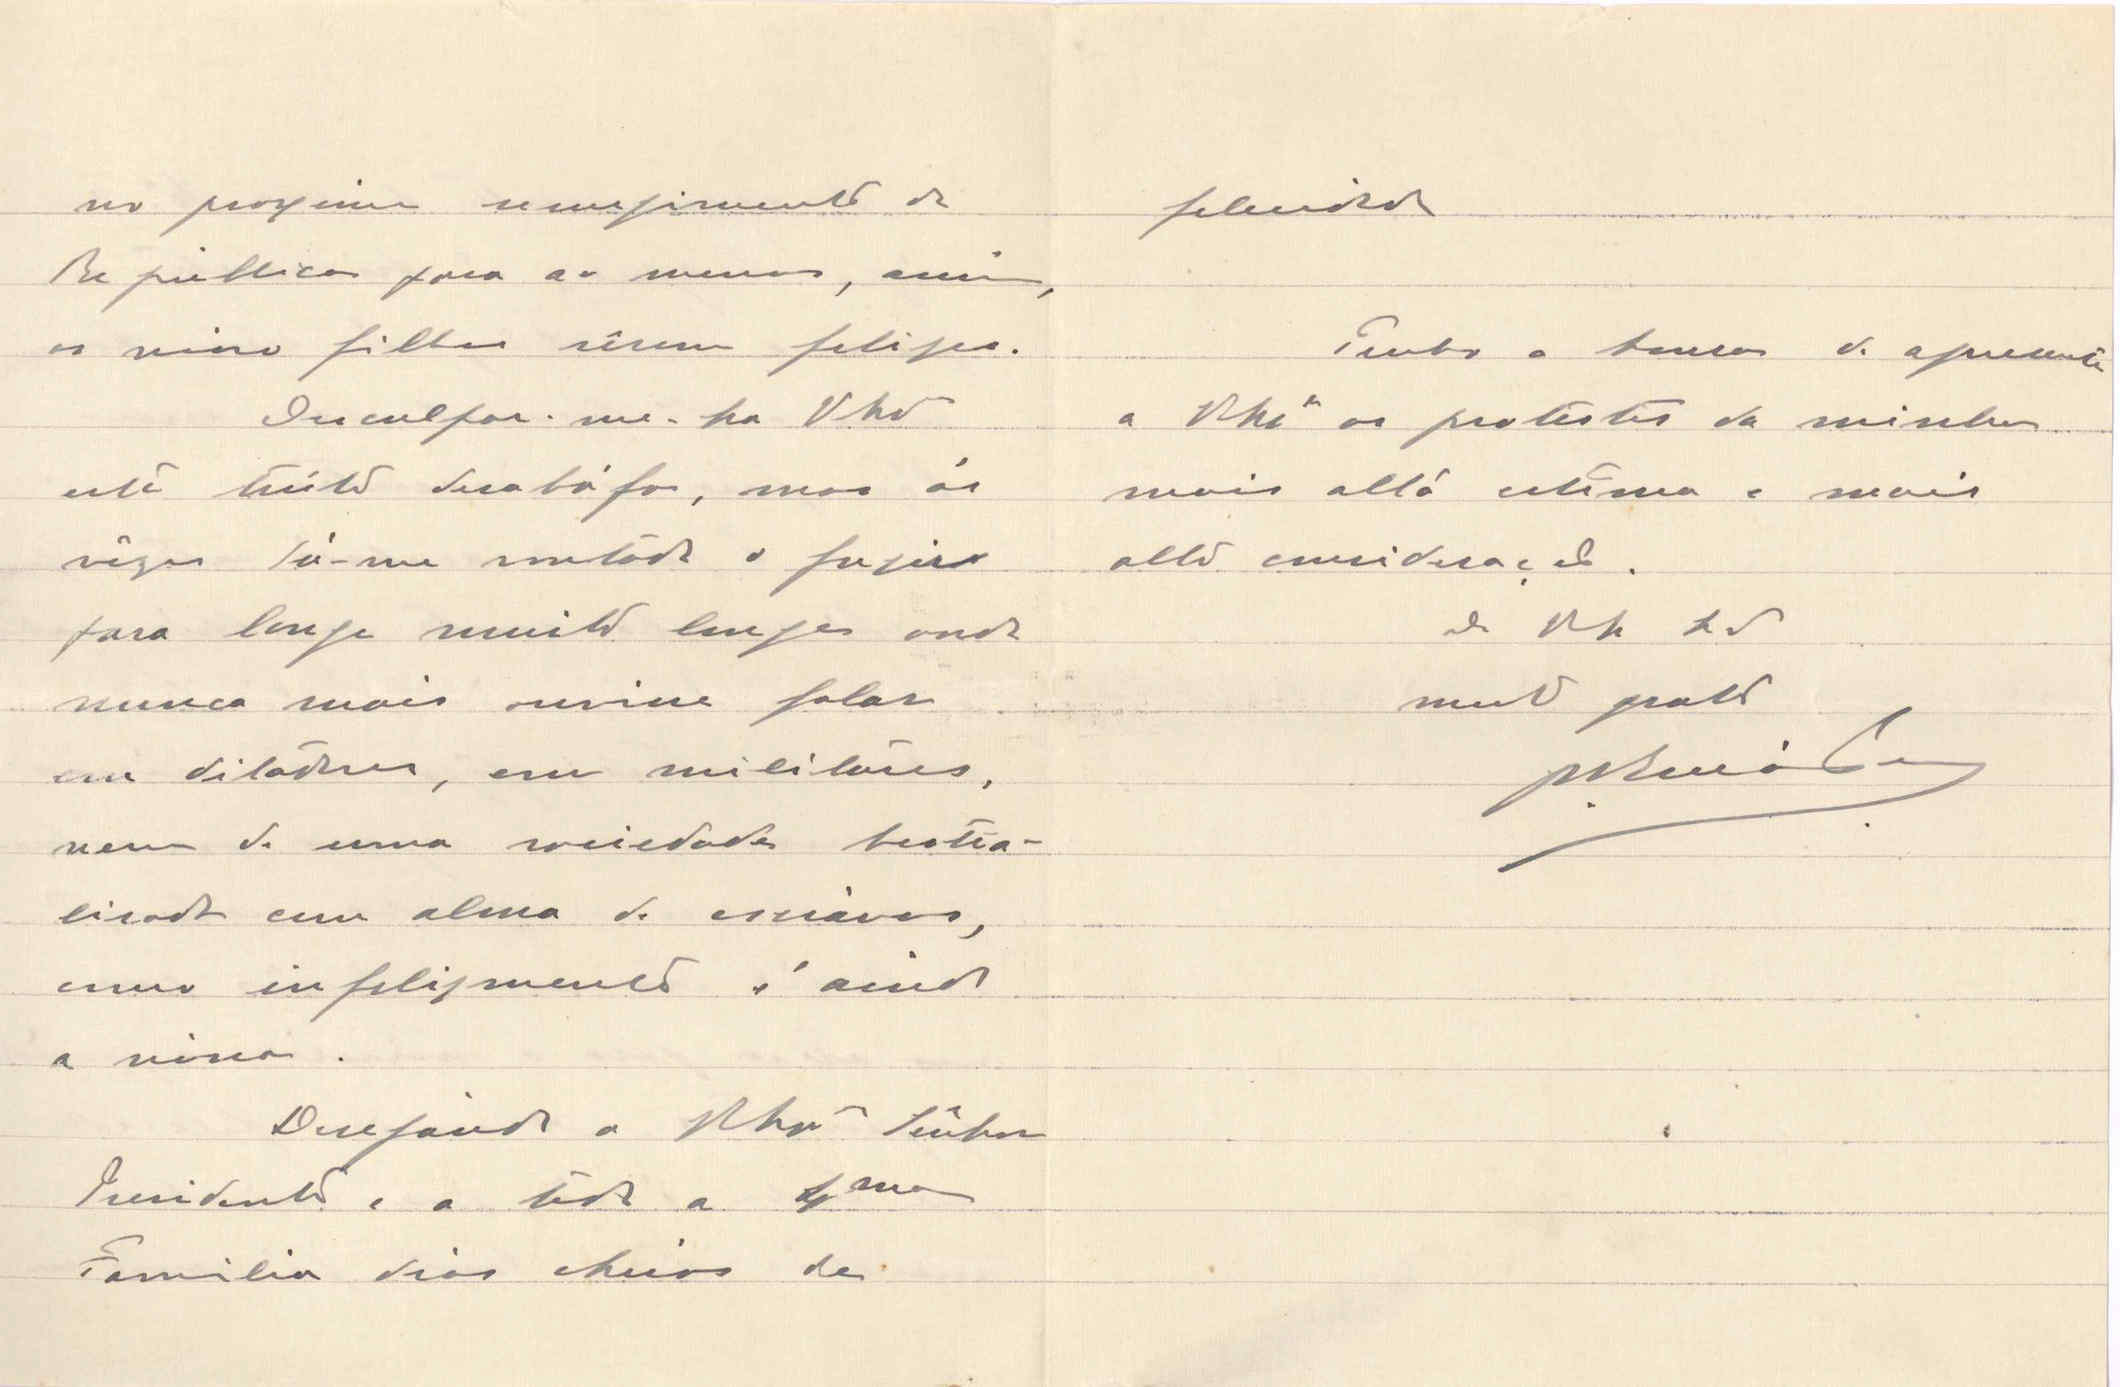 no proximo ressurgimento da
Republica para ao menos, assim,
os nossos filhos sêrem felizes.
Desculpar-me-ha V. Exª
este triste desabáfo, mas ás
vêzes dá-me vontade de fugir
para longe muito longe onde
nunca mais ouvisse falar
em ditadores, em militáres,
nem de uma sociedade bestia-
lisada com alma de escrávos,
como infelizmente é ainda
a nossa.
Desejando a V. Exª Senhor
Presidente e a toda a Exma
Familia dias cheios de
felicidade
Tenho a honra de apresentar
a V. Exª os protestos da minha
mais alta estima e mais
alta consideração.
De V. Exª
muito grato